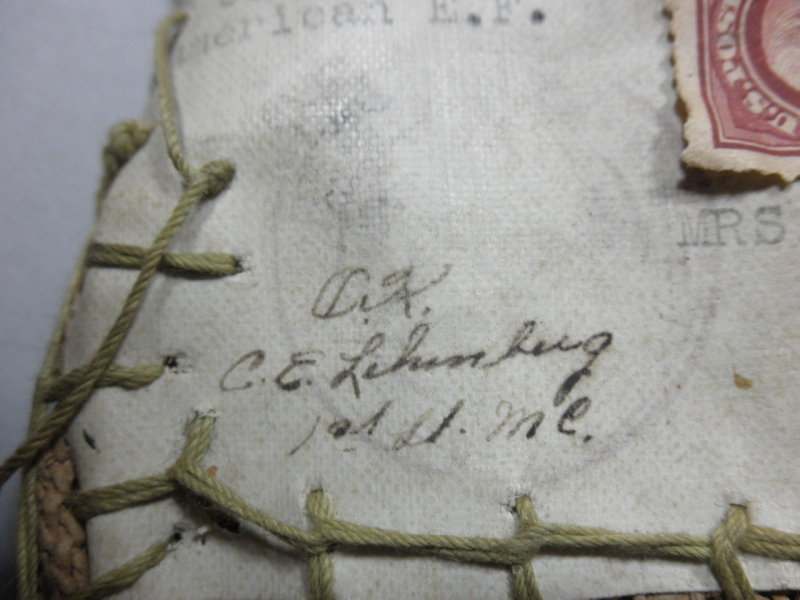 American E.F.
U.S. POS
MRS
O.K.
C. E. Lehmberg
1st Lt. MC.